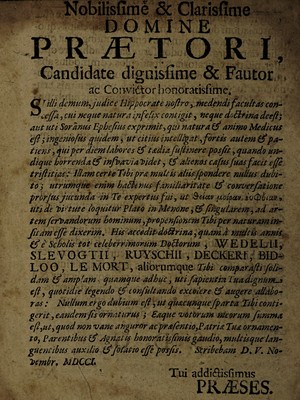 Nobilissime & Clarissime
DOMINE
PRÆTORI,
Candidate dignissime & Fautor
ac Convictor honoratissime.
Si illi demum, judice Hippocrate nostro, medendi facultas con-
cessa, cui neque natura infelix contigit, neque doctrina deest;
aut uti Soranus Ephesius exprimit, qui natura & animo Medicus
est; ingeniosus quidem, ut citius intelligat, fortis autem & pa-
tiens, qui per diem labores & tædia sustinere possit, quando un-
dique horrenda & insuavia videt, & alienos casus suas facit esse
tristitias: Illam certe Tibi præ multis aliis spondere nullus dubi-
to; utrumque enim hactenus familiaritate & conversatione
prorsus jucunda in Te expertus fui, ut
uti de virtute loquitur Plato in Menone, & singularem, ad ar-
tem servandorum hominum, propensionem Tibi per naturam in-
sitam esse dixerim. Hic accedit doctrina, quam à multis annis
& è Scholis tot celeberrimorum Doctorum, WEDELII,
SLEVOGTII, RUYSCHII, DECKERI, BID-
LOO, LE MORT, aliorumque Tibi comparasti soli-
dam & amplam. quamque adhuc, uti sapientia Tua dignum
est, quotidie legendo & consultando excolere & augere allabo-
ras: Nullum ergo dubium est, ut quacunque sparta Tibi conti-
gerit, eandem sis ornaturus; Eaque votorum meorum summa
est, ut, quod non vane auguror ac præsentio, Patriæ Tuæ ornamen-
to, Parentibus & Agnatis honoratissimis gaudio, multisque lan-
guentibus auxilio & solatio esse possis. Scribebam D. V. No-
vembr. MDCCI.
Tui addictissimus
PRÆSES.